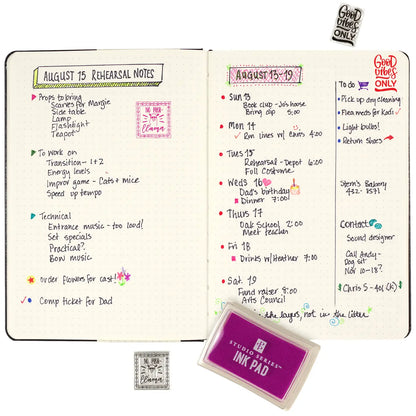 Good
Vibes
ONLY
AUGUST 15 REHEARSAL NOTES
Props to bring
Scarves for Margie
Side table
Lamp
Flashlight
Teapot
NO PROB
Llama
To work on
Transition - 1+2
Energy levels
Improv game - Cats + mice
Speed up tempo
Technical
Entrance music - too loud!
Set specials
Practical?
Bow music
Order flowers for cast!
Comp ticket for Dad
AUGUST 13-19
Sun 13
Book club - Jo's house
Bring dip 5:00
Mon 14
Run lines w/ Chris 4:00
Tues 15
Rehearsal - Depot 6:00
Full Costume
Weds 16
Dad's birthday
Dinner 7:00
Thurs 17
Oak School 2:00
Meet teacher
Fri 18
Drinks w/ Heather 7:00
Sat. 19
Fund raiser 8:00
Arts Council
the layers, not in the litter
Good
Vibes
ONLY
To do
Pick up dry cleaning
Flea meds for Kodi
Light bulbs!
Return shoes
Stern's Bakery
432-8591
Contact
Sound designer
Call Andy -
Dog sit
Nov 10-18?
Chris 5-
NO PROB
Llama
STUDIO SERIES
INK PAD